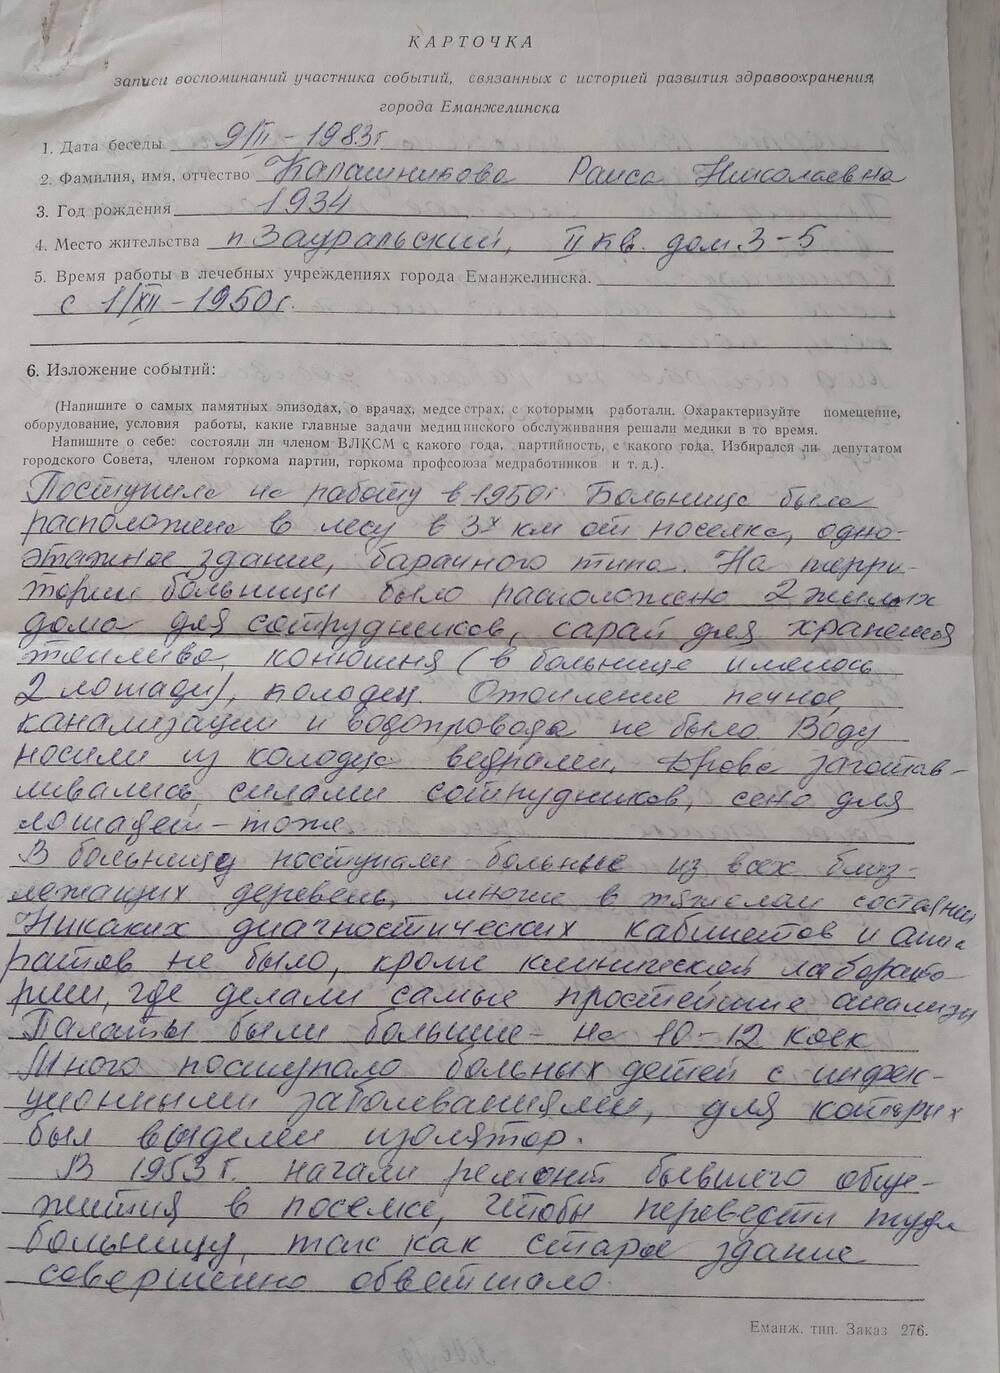 КАРТОЧКА
записи воспоминаний участника событий, связанных с историей развития здравоохранения,
города Еманжелинска
1. Дата беседы 9/II - 1983 г
2. Фамилия, имя, отчество Калашникова Раиса Николаевна
3. Год рождения 1934
4. Место жительства п. Зауральский, II кв. дом 3-5
5. Время работы в лечебных учреждениях города Еманжелинска.
с 1/XII - 1950 г.
6. Изложение событий:
(Напишите о самых памятных эпизодах, о врачах, медсестрах, с которыми работали. Охарактеризуйте помещение,
оборудование, условия работы, какие главные задачи медицинского обслуживания решали медики в то время.
Напишите о себе: состояли ли членом ВЛКСМ с какого года, партийность, с какого года. Избирался ли депутатом
городского Совета, членом горкома партии, горкома профсоюза медработников и т. д.).
Поступила на работу в 1950 г Больница была
расположена в лесу в 3х км от поселка, одно-
этажное здание, барачного типа. На терри-
тории больницы было расположено 2 жилых
дома для сотрудников, сарай для хранения
топлива, конюшня (в больнице имелось
2 лошади), колодец. Отопление печное,
канализации и водопровода не было. Воду
носили из колодца ведрами. Дрова заготав-
ливались силами сотрудников, сено для
лошадей - тоже.
В больницу поступали больные из всех близ-
лежащих деревень, многие в тяжелом состоянии
Никаких диагностических кабинетов и аппа
ратов не было, кроме клинической лаборато-
рии, где делали самые простейшие анализы
Палаты были большие - на 10-12 коек
Много поступало больных детей с инфек-
ционными заболеваниями, для которых
был выделен изолятор.
В 1953 г. начали ремонт бывшего обще-
жития в поселке, чтобы перевести туда
больницу, так как старое здание
совершенно обветшало.
Еманж. тип. Заказ 276.